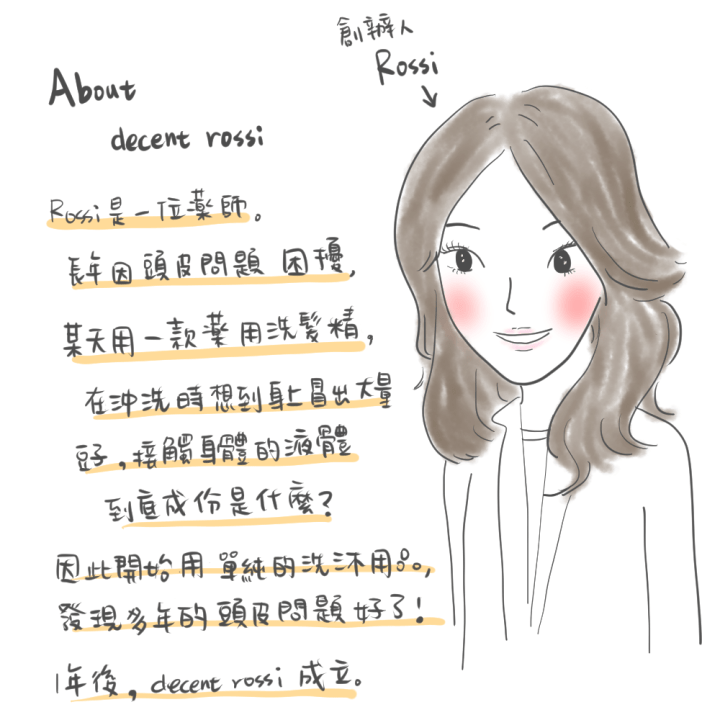 創辦人
Rossi
About
decent rossi
Rossi是一位藥師。
長年因頭皮問題困擾,
某天用一款藥用洗髮精,
在沖洗時想到身上冒出大量
痘子,接觸身體的液體
到底成份是什麼?
因此開始用單純的洗沐用品,
發現多年的頭皮問題好了!
1年後,decent rossi 成立。